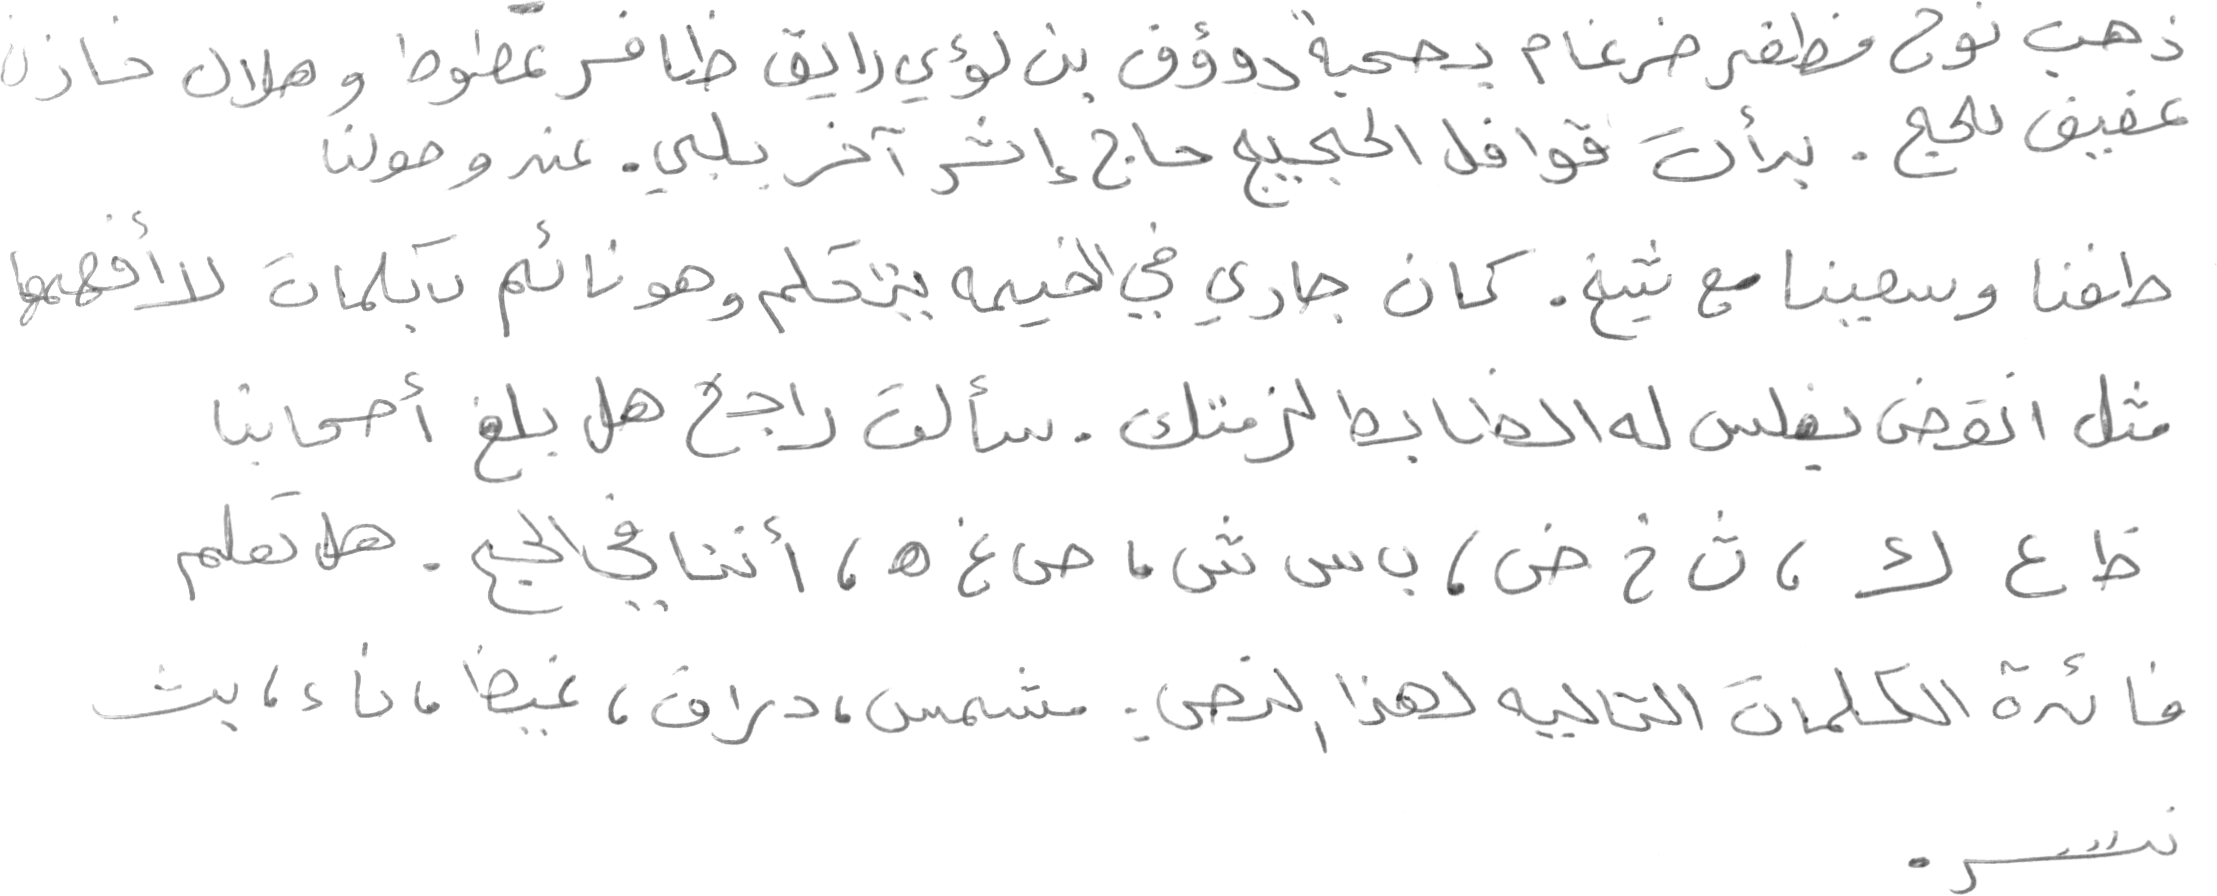 ذهب نوح مظفر ضرغام بصحبة رؤوف بن لؤي رايق ظافر عطوط و هلال خازن
عفيف للحج . بدأت قوافل الحجيج حاج إثر آخر يلبي . عند وصولنا
طفنا وسعينا مع شيخ . كان جاري في الخيمه يتكلم وهو نائم بكلمات لا أفهمها
مثل انقض يفلس له الضابط لزمتك . سألت راجح هل بلغ أصحابنا
ظ ع ك ، ث خ ض ، ب س ش ، ص غ ه ، أننا في الحج . هل تعلم
فائدة الكلمات التاليه لهذا النص : مشمس ، دراق ، غيظ ، ناء ، بث
نسر .